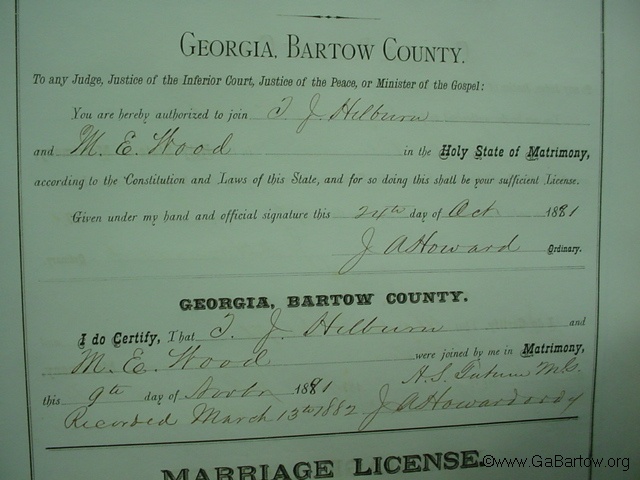 GEORGIA, BARTOW COUNTY.
To any Judge, Justice of the Inferior Court, Justice of the Peace, or Minister of the Gospel:
You are hereby authorized to join T. J. Hilburn
and M. E. Wood in the Holy State of Matrimony,
according to the Constitution and Laws of this State, and for so doing this shall be your sufficient License.
Given under my hand and official signature this 24th day of Oct 1881
J A Howard Ordinary.
GEORGIA, BARTOW COUNTY.
I do Certify, That T. J. Hilburn and
M. E. Wood were joined by me in Matrimony,
this 9th day of Novbr 1881 A. S. M.G.
Recorded March 13th 1882 J A Howard ordy
MARRIAGE LICENSE.
©www.GaBartow.org